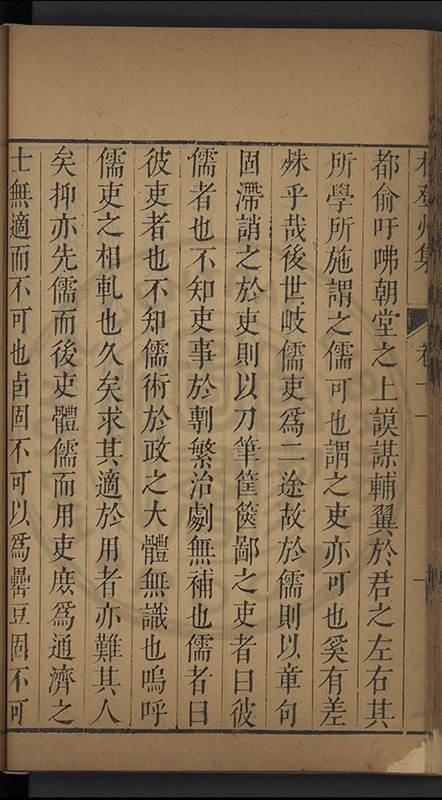 登州集
卷十一
都俞吁咈朝堂之上謨謀輔翼於君之左右其
所學所施謂之儒可也謂之吏亦可也奚有差
殊乎哉後世岐儒吏爲二途故於儒則以章句
固滯誚之於吏則以刀筆筐篋鄙之吏者曰彼
儒者也不知吏事於剸繁治劇無補也儒者曰
彼吏者也不知儒術於政之大體無識也嗚呼
儒吏之相軋也久矣求其適於用者亦難其人
矣抑亦先儒而後吏體儒而用吏庶爲通濟之
士無適而不可也卣固不可以爲罍豆固不可